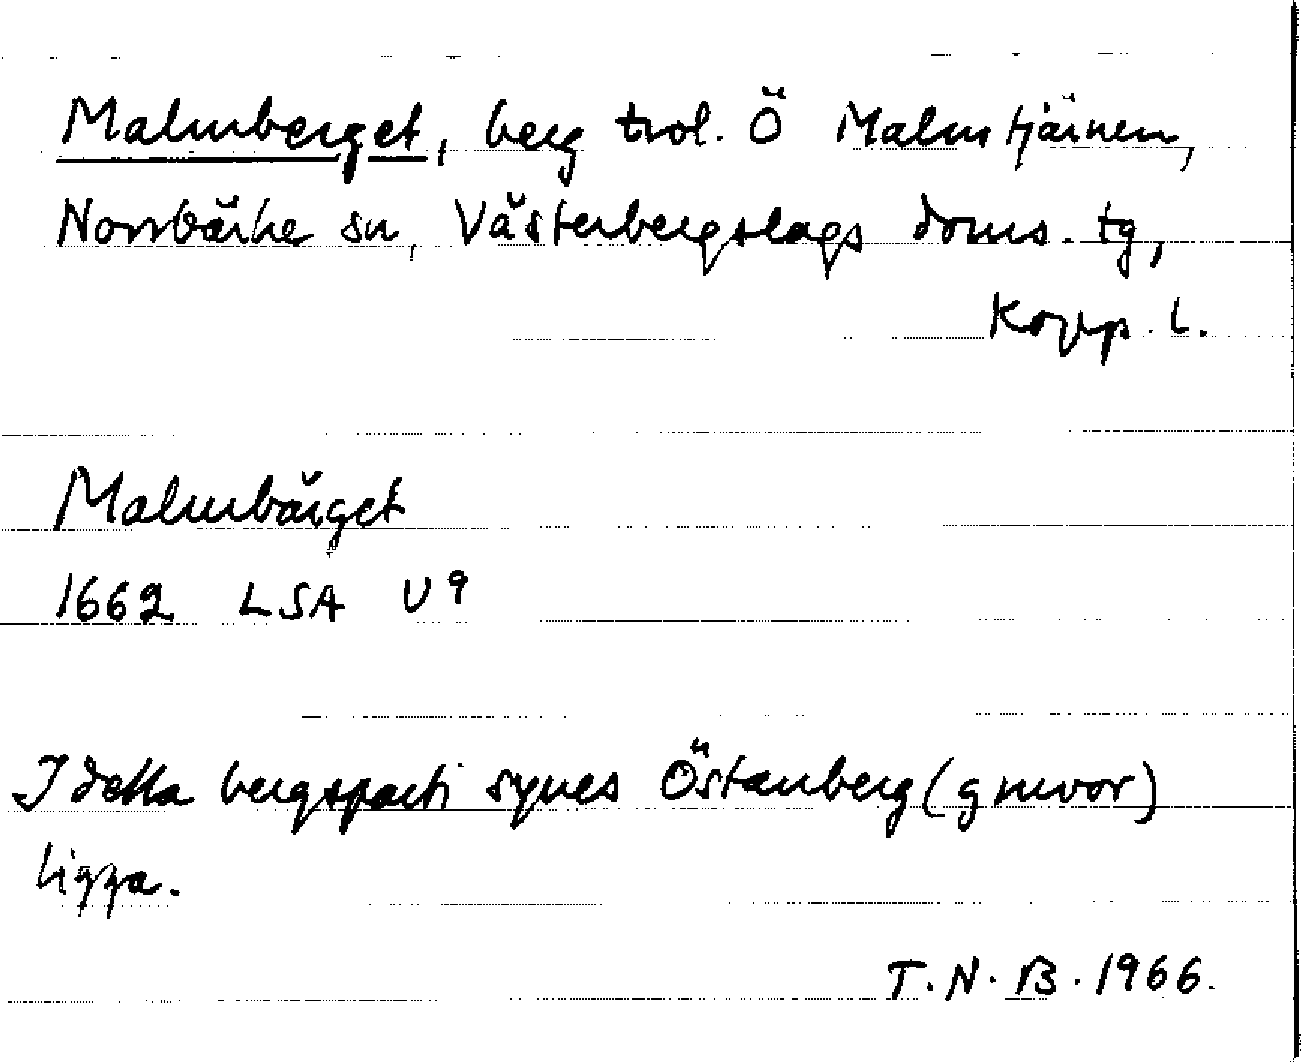 Malmberget, berg trol. Ö Malmtjärnen,
Norrbärke sn, Västerbergslags doms. tg,
Kopp. l.
Malmbärget
1662 LSA U 9
I detta bergsparti synes Östanberg (gruvor)
ligga.
T. N. B. 1966.